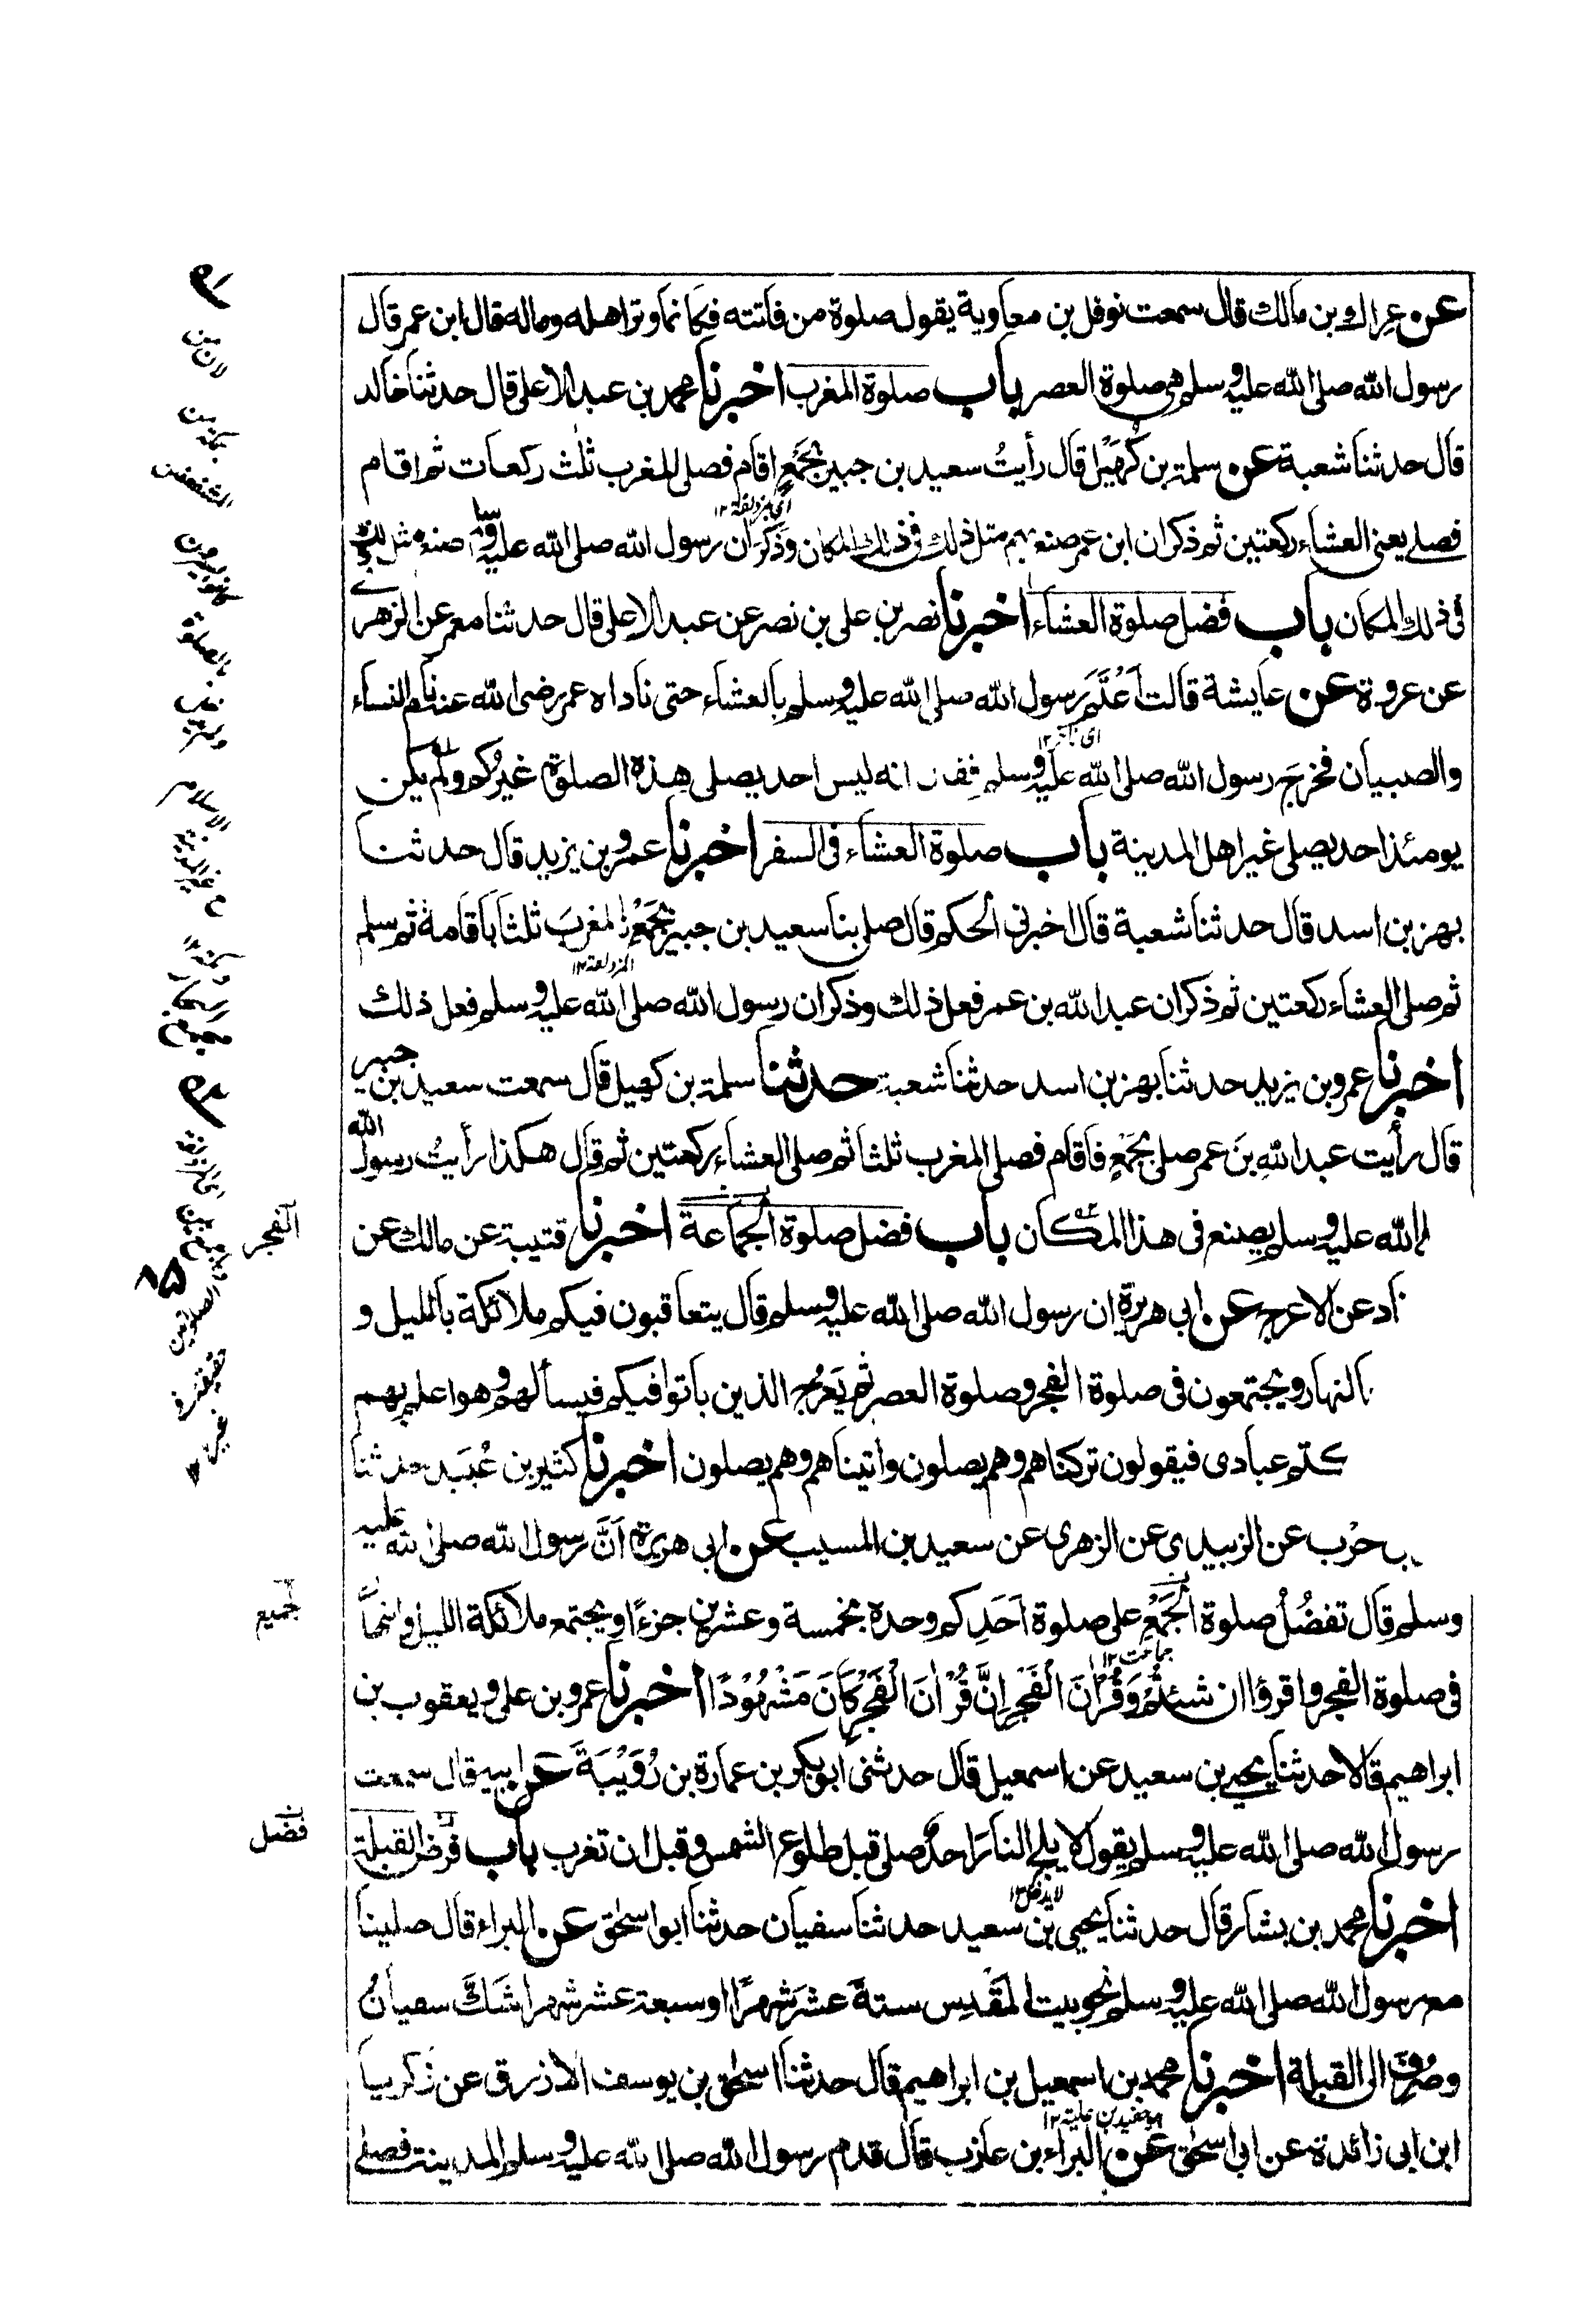 عن عراك بن مالك قال سمعت نوفل بن معاوية يقول صلوة من فاتته فكانما وتر اهله وماله قال ابن عمر قال
رسول الله صلى الله عليه وسلم هي صلوة العصر باب صلوة المغرب اخبرنا محمد بن عبد الاعلى قال حدثنا خالد
قال حدثنا شعبة عن سلمة بن كُهَيْل قال رأيتُ سعيد بن جبير بجَمْعٍ اقام فصلى المغرب ثلٰث ركعات ثم اقام
اى بمزدلفة ١٢
فصلے يعنى العشاء ركعتين ثم ذكر ان ابن عمر صنع بهم مثل ذلك فى ذلك المكان وذكر ان رسول الله صلى الله عليه وسلم صنع مثل ذلك
فى ذلك المكان باب فضل صلوة العشاء اخبرنا نصر بن على بن نصر عن عبد الاعلى قال حدثنا معمر عن الزهرے
عن عروة عن عايشة قالت اَعْتَمَ رسول الله صلى الله عليه وسلم بالعشاء حتى ناداه عمر رضى الله عنه نام النساء
اى تأخر ١٢
والصبيان فخرجَ رسول الله صلى الله عليه وسلم فقال انه ليس احد يصلى هذه الصلوة غيرُكم ولم يكن
يومئذ احد يصلى غير اهل المدينة باب صلوة العشاء فى السفر اخبرنا عمرو بن يزيد قال حدثنا
بهز بن اسد قال حدثنا شعبة قال اخبرنى الحكم قال صلى بنا سعيد بن جبير بجَمْعٍ المغربَ ثلثا باقامة ثم سلم
المزدلفة ١٢
ثم صلى العشاء ركعتين ثم ذكر ان عبد الله بن عمر فعل ذلك وذكر ان رسول الله صلى الله عليه وسلم فعل ذلك
اخبرنا عمرو بن يزيد حدثنا بهز بن اسد حدثنا شعبة حدثنا سلمة بن كهيل قال سمعت سعيد بن جبير
قال رأيت عبد اللهِ بنَ عمر صلى بجَمْعٍ فاقام فصلى المغرب ثلثا ثم صلى العشاء ركعتين ثم قال هكذا رأيتُ رسول الله
الله عليه وسلم يصنع فى هذا المكان باب فضل صلوة الجماعة اخبرنا قتيبة عن مالك عن
الفجر
ناد عن الاعرج عن ابى هريرة ان رسول الله صلى الله عليه وسلم قال يتعاقبون فيكم ملائكة بالليل و
بالنهار ويجتمعون فى صلوة الفجر وصلوة العصر ثم يَعرُج الذين باتوا فيكم فيسألهم وهو اعلم بهم
كتم عبادى فيقولون تركناهم وهم يصلون واتيناهم وهم يصلون اخبرنا كثير بن عُبَيد حدثنا
حرْب عن الزبيدى عن الزهرى عن سعيد بن المسيب عن ابى هريرة اَنَّ رسول الله صلى الله عليه
وسلم قال تفضُلُ صلوة الجَمْعِ على صلوة اَحَدِكم وحده بخمسة وعشرين جزءًا ويجتمع ملائكة الليل والنها
جميع
جماعت ١٢
فى صلوة الفجر واقرؤا ان شئتُم وَقُرْاٰنَ الْفَجْرِ اِنَّ قُرْاٰنَ الْفَجْرِ كَانَ مَشْهُوْدًا اخبرنا عمرو بن على ويعقوب بن
ابراهيم قالا حدثنا يحيے بن سعيد عن اسمعيل قال حدثنى ابو بكر بن عمارة بن رُوَيْبَةَ عن ابيه قال سمعت
رسول الله صلى الله عليه وسلم يقول لا يلج النارَ احدٌ صلى قبل طلوع الشمس وقبل ان تغرب باب فرض القبلة
فضل
لا يدخل ١٢
اخبرنا محمد بن بشار قال حدثنا يحيى بن سعيد حدثنا سفيان حدثنا ابو اسحٰق عن البراء قال صلينا
مع رسول الله صلى الله عليه وسلم نحو بيت المَقْدِس ستةَ عشرَ شهرًا او سبعة عشر شهرا شَكَّ سفيانُ
وصُرِفَ الى القبلة اخبرنا محمد بن اسمعيل بن ابراهيم قال حدثنا اسحٰق بن يوسف الازرق عن زكريا
ابن ابى زائدة عن ابى اسحٰق عن البراء بن عازب قال قدم رسول الله صلى الله عليه وسلم المدينة فصلى